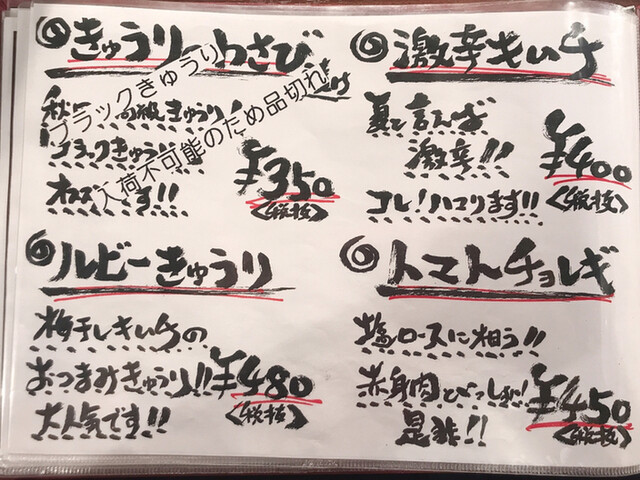 きゅうり わさび
ブラックきゅうり
入荷不可能のため品切れ
¥350
<税抜>
激辛キムチ
激辛!!
コレ!ハマります!!
¥400
<税抜>
ルビーきゅうり
梅干しキムチの
おつまみきゅうり!!
大人気です!!
¥480
<税抜>
トマトチョレギ
塩ロースに相う!!
赤身肉と
是非!!
¥450
<税抜>